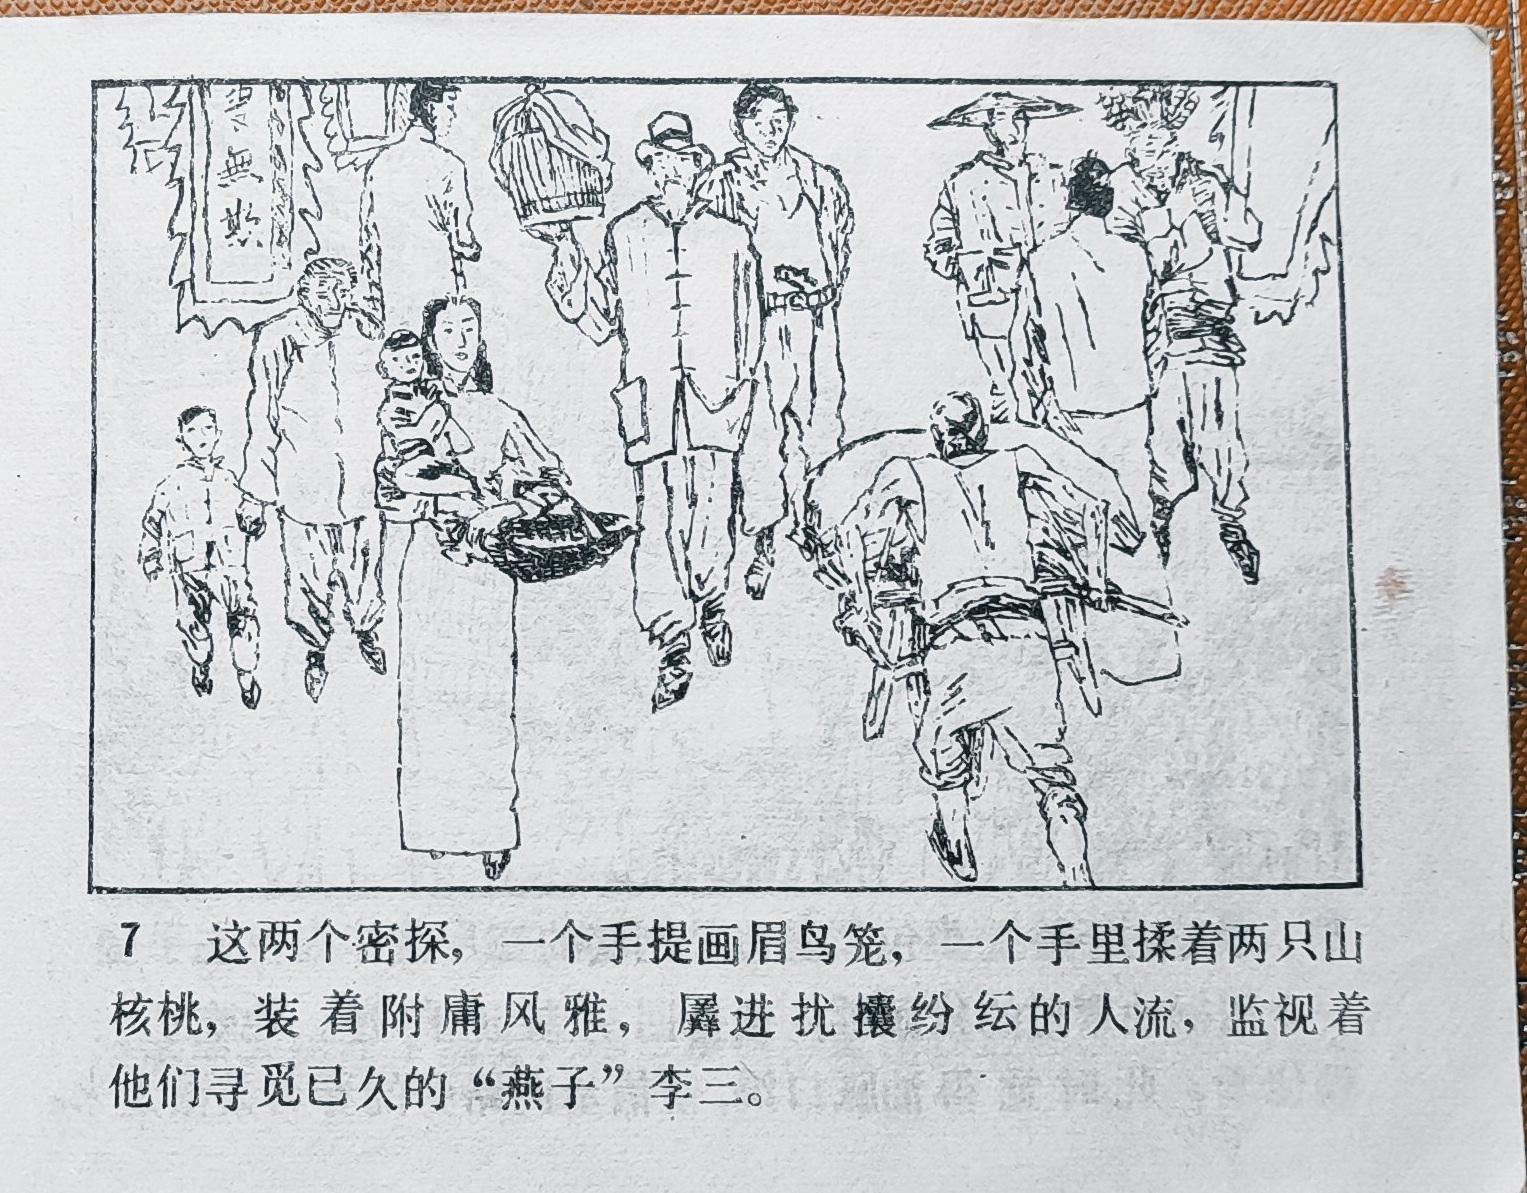 無
欺
7 这两个密探，一个手提画眉鸟笼，一个手里揉着两只山
核桃，装着附庸风雅，羼进扰攘纷纭的人流，监视着
他们寻觅已久的“燕子”李三。